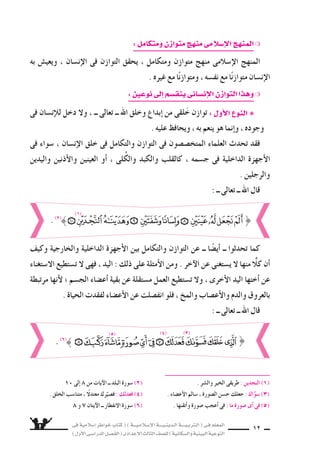 المنهج الإسلامى منهج متوازن ومتكامل :
المنهج الإسلامى منهج متوازن ومتكامل ، يحقق التوازن فى الإنسان ، ويعيش به
الإنسان متوازنًا مع نفسه ، ومتوازنًا مع غيره .
وهذا التوازن الإنسانى ينقسم إلى نوعين :
* النوع الأول ، توازن خَلْقى من إبداع وخلق الله ـ تعالى ـ ، ولا دخل للإنسان فى
وجوده ، وإنما هو ينعم به ، ويحافظ عليه .
فقد تحدث العلماء المتخصصون فى التوازن والتكامل فى خلق الإنسان ، سواء فى
الأجهزة الداخلية فى جسمه ، كالقلب والكبد والكُلى ، أو العينين والأذنين واليدين
والرجلين .
قال الله ـ تعالى ـ :
﴿ أَلَمْ نَجْعَل لَّهُ عَيْنَيْنِ ۝ وَلِسَانًا وَشَفَتَيْنِ ۝ وَهَدَيْنَاهُ النَّجْدَيْنِ (١) ۝ ﴾ (٢).
كما تحدثوا ـ أيضًا ـ عن التوازن والتكامل بين الأجهزة الداخلية والخارجية وكيف
أن كلًّا منها لا يستغنى عن الآخر . ومن الأمثلة على ذلك : اليد ، فهى لا تستطيع الاستغناء
عن أختها اليد الأخرى ، ولا تستطيع العمل مستقلة عن بقية أعضاء الجسم ؛ لأنها مرتبطة
بالعروق والدم والأعصاب والمخ ، فلو انفصلت عن الأعضاء لفقدت الحياة .
قال الله ـ تعالى ـ :
﴿ الَّذِي خَلَقَكَ فَسَوَّاكَ (٣) فَعَدَلَكَ (٤) ۝ فِي أَيِّ صُورَةٍ مَّا (٥) شَاءَ رَكَّبَكَ ۝ ﴾ (٦).
(١) النجدين : طريقى الخير والشر .
(٢) سورة البلد ـ الآيات من ٨ إلى ١٠
(٣) سوَّاك : جعلك حسن الصورة ، سالم الأعضاء .
(٤) فعدلك : فصيَّرك معتدلًا ، متناسب الخلق .
(٥) فى أى صورة ما : فى أعجب صورة وأتقنها .
(٦) سورة الانفطار ـ الآيتان ٧ و ٨
١٢
المعلم فى ( التربية الدينية الإسلامية ) ( كتاب خواطر إسلامية فى
التوعية البيئية والسكانية ) للصف الثالث الإعدادى ( الفصل الدراسى الأول )